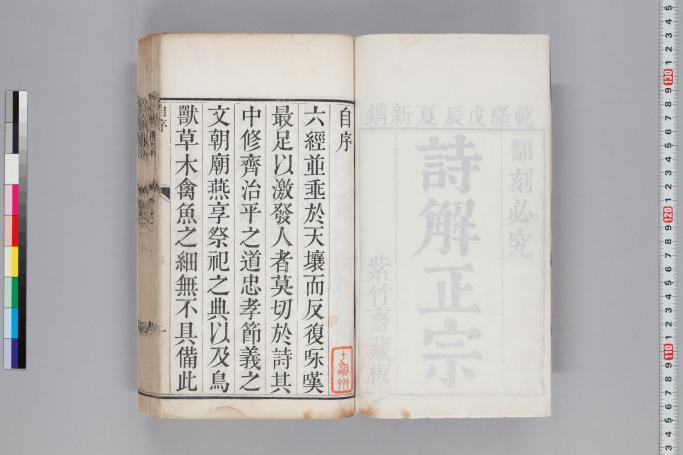 乾隆戊辰夏新鐫
翻刻必究
詩解正宗
紫竹齋藏板
自序
六經並垂於天壤而反復咏嘆
最足以激發人者莫切於詩其
中修齊治平之道忠孝節義之
文朝廟燕享祭祀之典以及鳥
獸草木禽魚之細無不具備此
自序